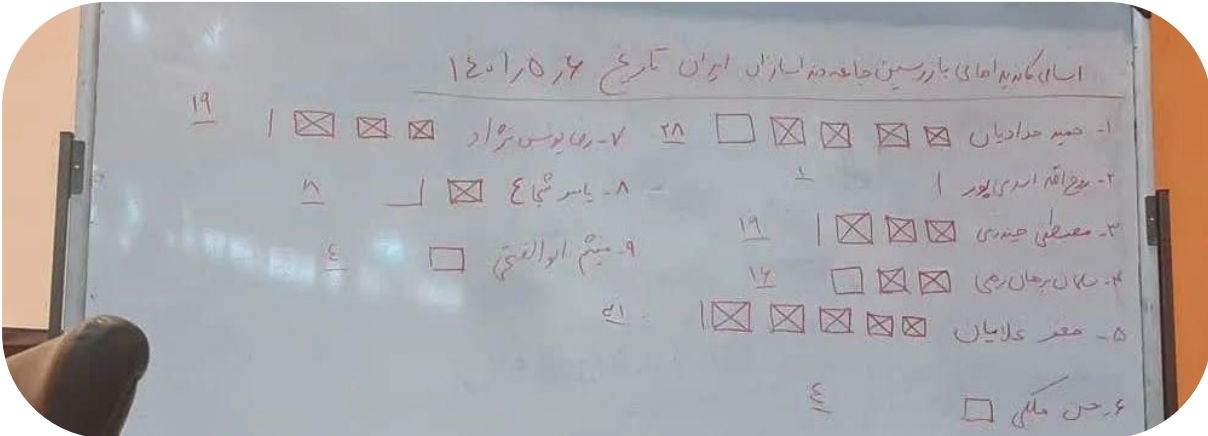 اسامی کاندیداهای بازرسین جامعه دندانسازان ایران تاریخ ۱۴۰۱٫۵٫۶
۱- حمید حدادیان ۲۸
۲- روح الله اسدی پور ۱
۳- مصطفی حیدری ۱۹
۴- ۱۶
۵- ۳۱
۶- حسن ملکی ٤
۷- یونس نژاد ۱۹
۸- یاسر شجاع ۸
۹- میثم ابوالفتحی ٤